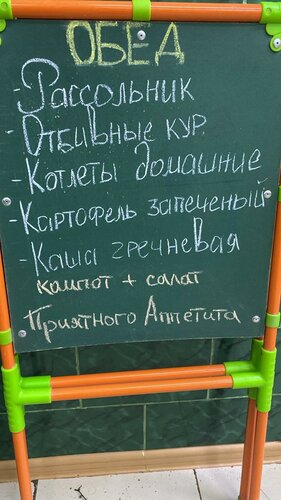 ОБЕД
- Рассольник
- Отбивные кур.
- Котлеты домашние
- Картофель запеченый
- Каша гречневая
компот + салат
Приятного Аппетита